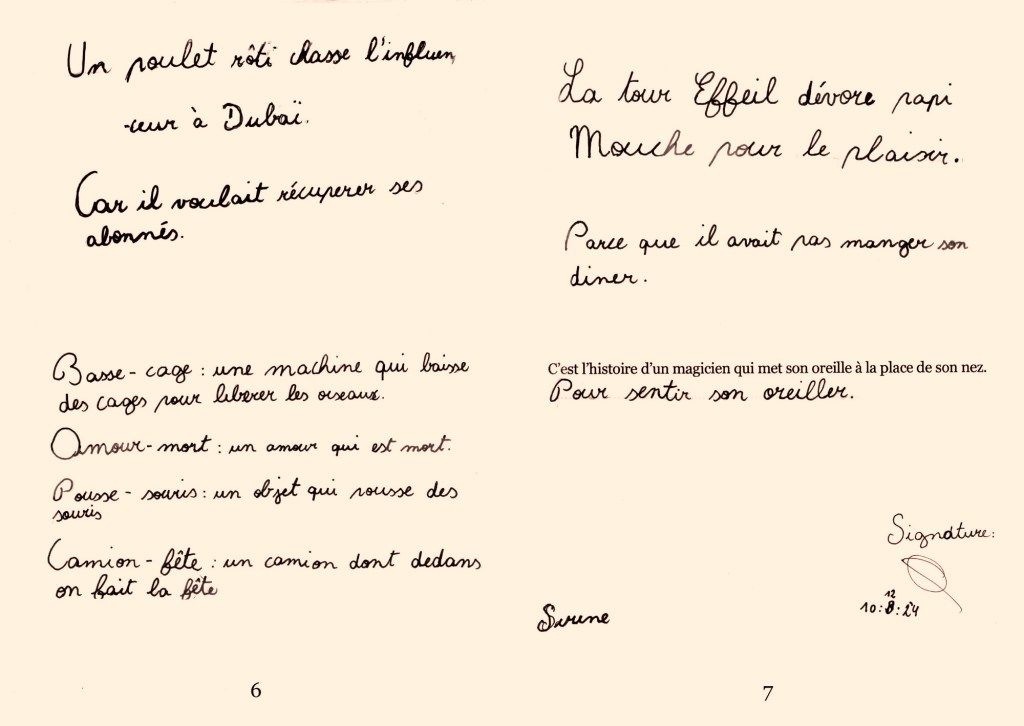 Un poulet rôti chasse l'influen
-ceur à Dubaï.
Car il voulait récuperer ses
abonnés.
Basse-cage : une machine qui baisse
des cages pour liberer les oiseaux.
Amour-mort : un amour qui est mort.
Pousse-souris : un objet qui pousse des
souris
Camion-fête : un camion dont dedans
on fait la fête
6
La tour Effeil dévore papi
Mouche pour le plaisir.
Parce que il avait pas manger son
diner.
C'est l'histoire d'un magicien qui met son oreille à la place de son nez.
Pour sentir son oreiller.
Signature:
12
10:8:24
Sirine
7